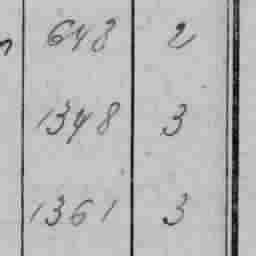 648 2
1348 3
1361 3